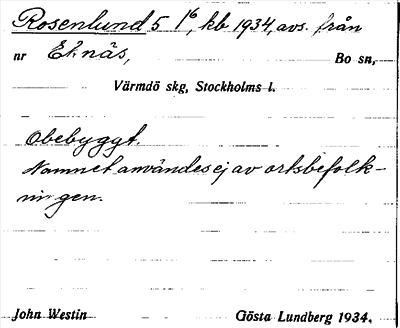 Rosenlund 5 16, kb 1934, avs. från
nr Eknäs, Bo sn,
Värmdö skg, Stockholms l.
Obebyggt.
Namnet användes ej av ortsbefolk-
ningen.
John Westin Gösta Lundberg 1934.